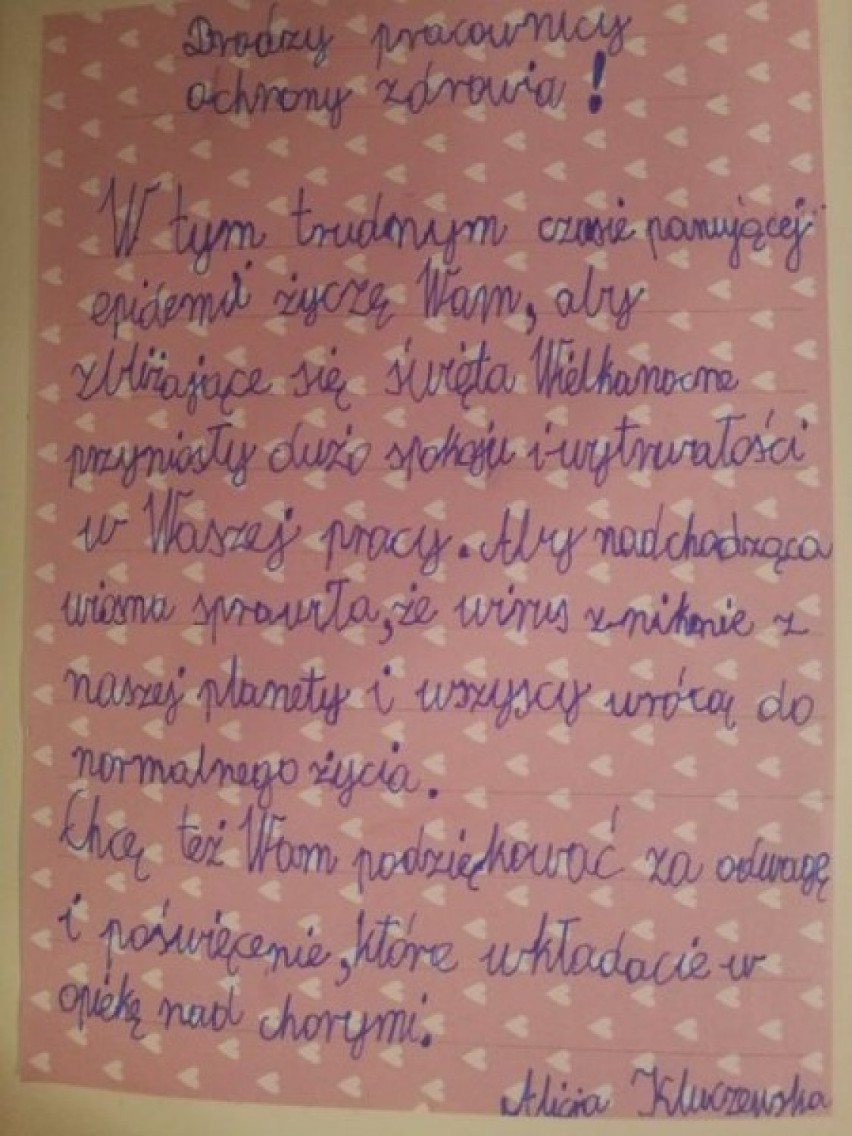 Drodzy pracownicy
ochrony zdrowia!
W tym trudnym czasie panującej
epidemii życzę Wam, aby
zbliżające się święta Wielkanocne
przyniosły dużo spokoju i wytrwałości
w Waszej pracy. Aby nadchodząca
wiosna sprawiła, że wirus zniknie z
naszej planety i wszyscy wrócą do
normalnego życia.
Chcę też Wam podziękować za odwagę
i poświęcenie, które wkładacie w
opiekę nad chorymi.
Alicja Kluczewska